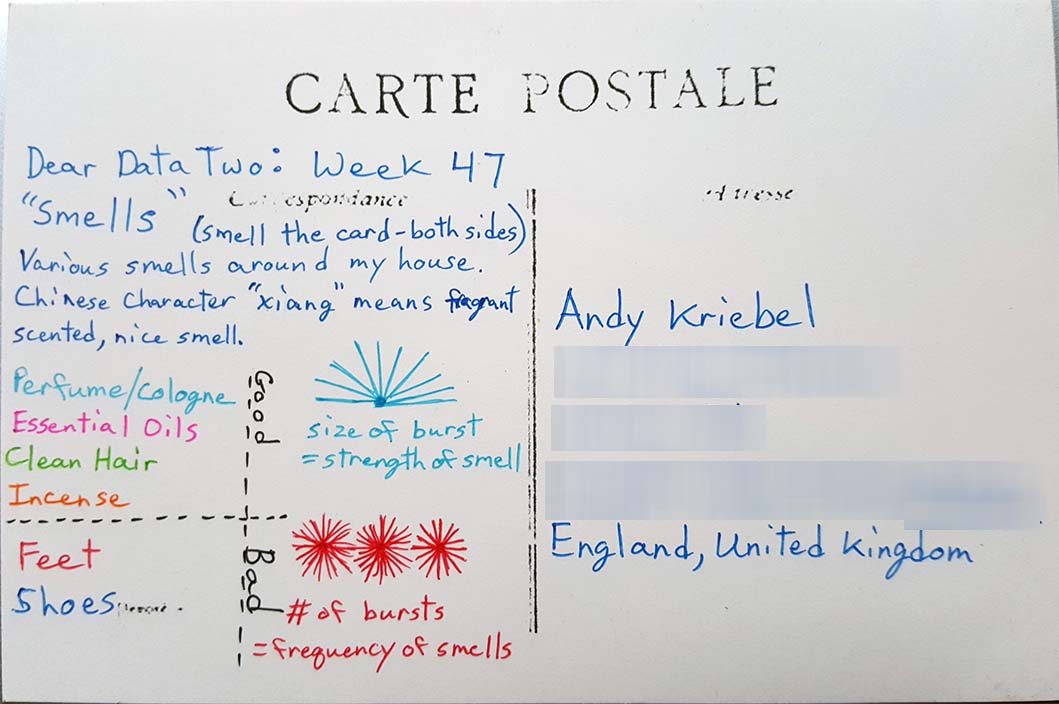 CARTE POSTALE
Dear Data Two: Week 47
"Smells"
Correspondance
Adresse
(smell the card-both sides)
Various smells around my house.
Chinese character "xiang" means fragrant
scented, nice smell.
Perfume/Cologne
Essential Oils
Clean Hair
Incense
Good
size of burst
=strength of smell
Feet
Shoes
Bad
# of bursts
=frequency of smells
Andy Kriebel
England, United Kingdom